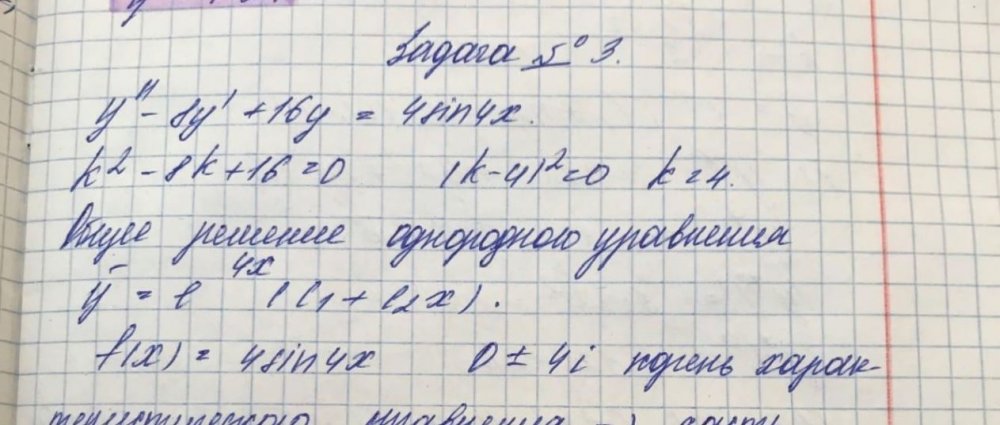 Задача № 3.
y'' - 8y' + 16y = 4sin4x.
k² - 8k + 16 = 0 (k-4)² = 0 k = 4.
Общее решение однородного уравнения
ȳ = e^{4x} (C₁ + C₂x).
f(x) = 4sin4x 0 ± 4i корень харак-
теристического уравнения